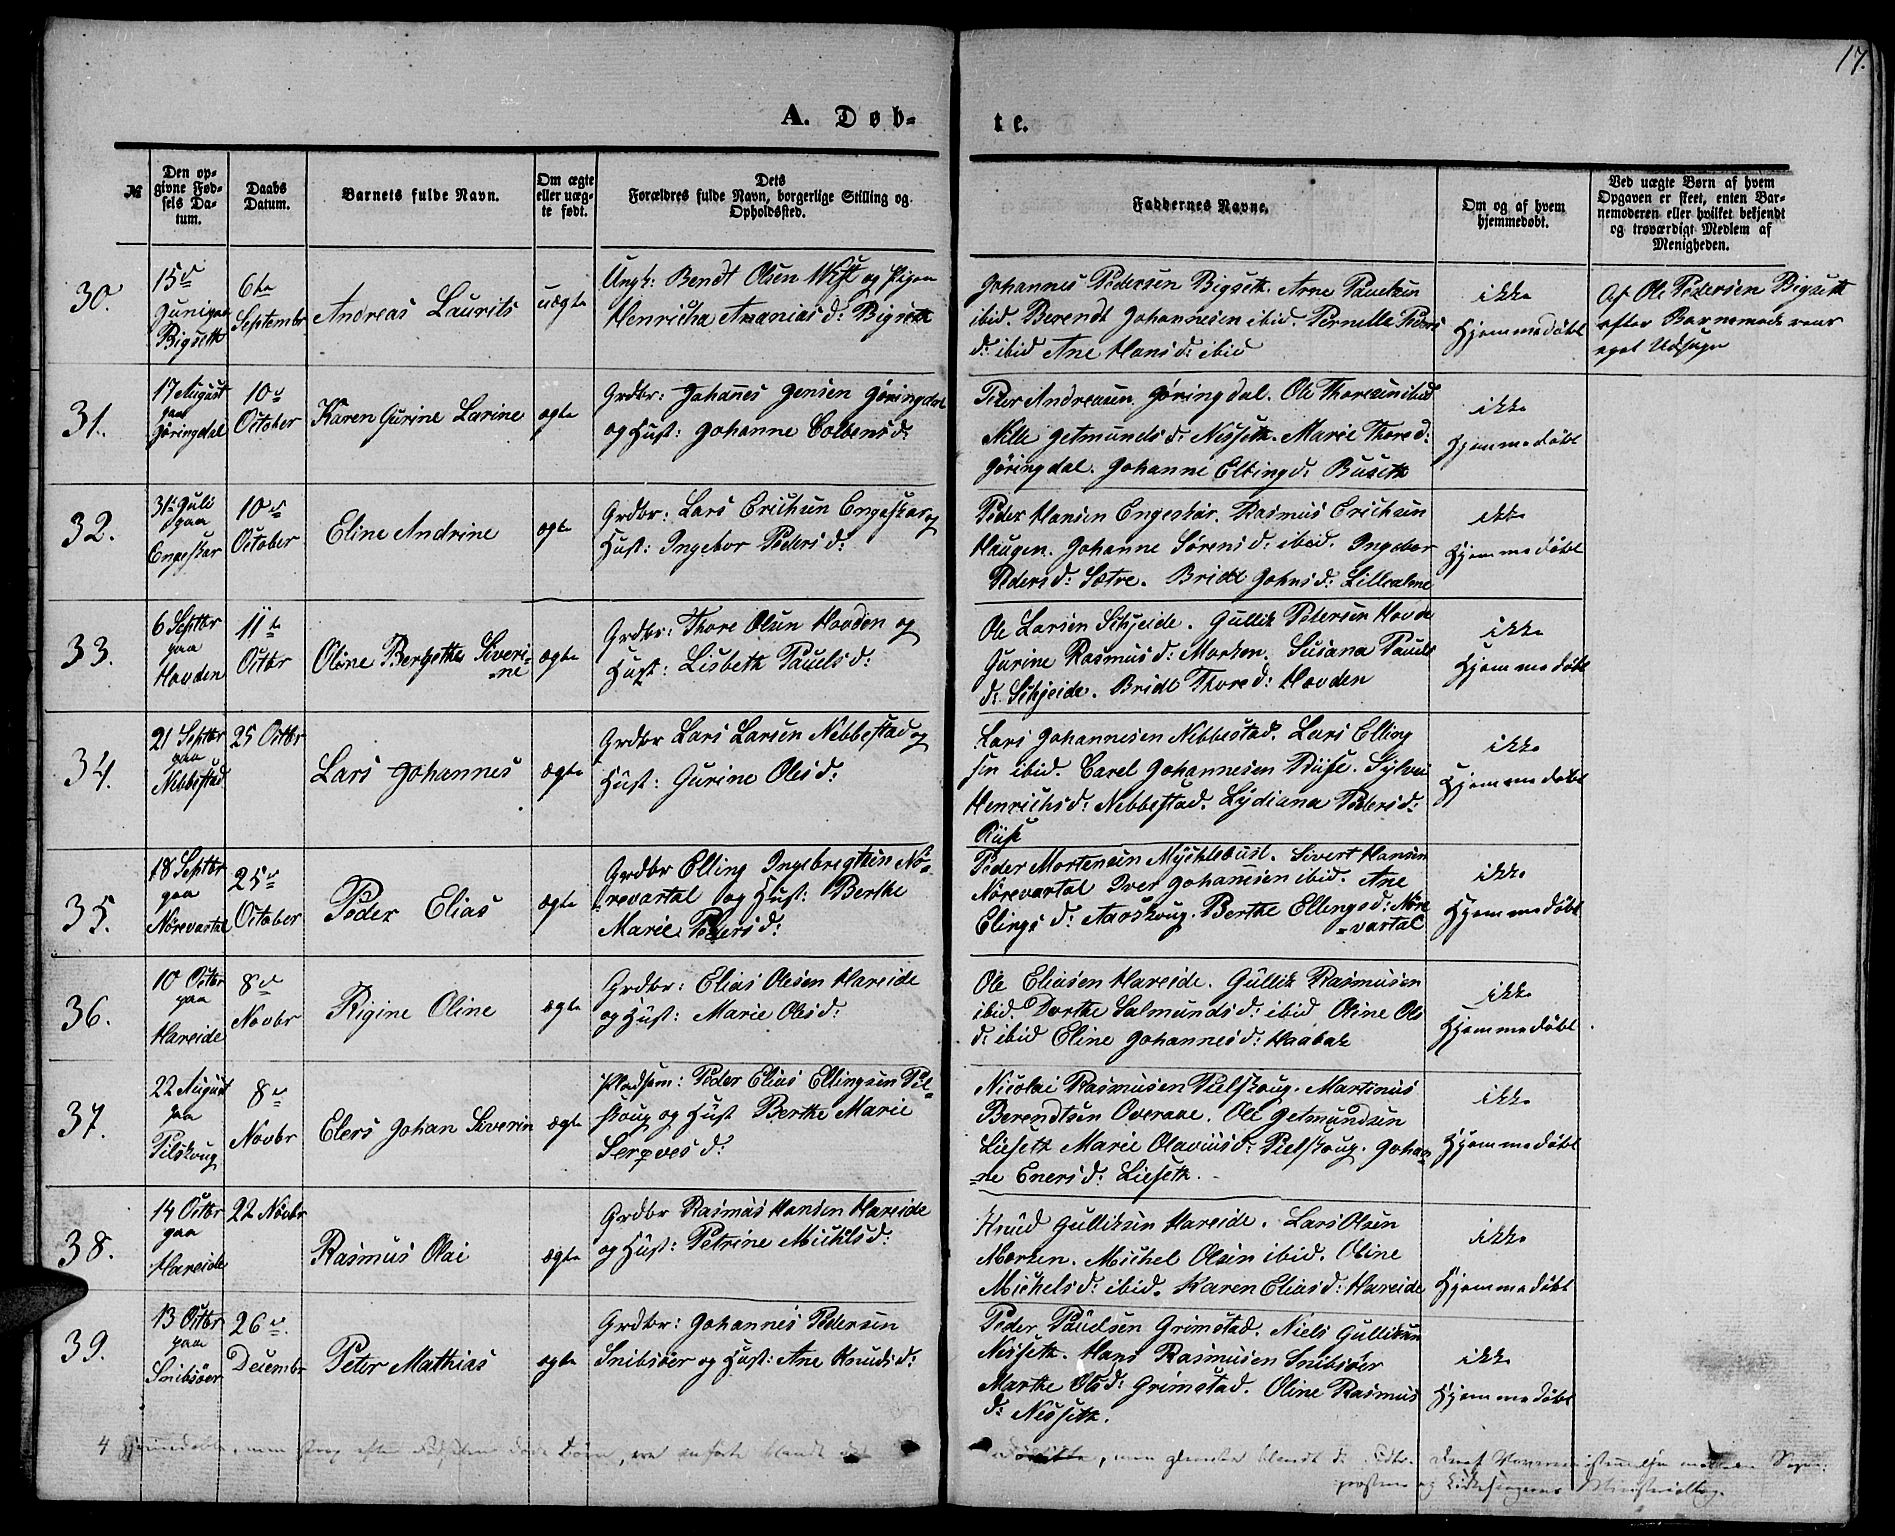 17.
A. Døb-
te.
№
Den op-
givne Fød-
sels Da-
tum.
Daabs
Datum.
Barnets fulde Navn.
Om ægte
eller uæg-
te født.
Dets
Forældres fulde Navn, borgerlige Stilling og
Opholdssted.
Faddernes Navne.
Om og af hvem
hjemmedøbt.
Ved uægte Børn af hvem
Opgaven er skeet, enten Bar-
nemoderen eller hvilket bekjendt
og troværdigt Medlem af
Menigheden.
30.
15de
Juni paa
Bigseth
6te
Septembr
Andreas Laurits
uægte
Ungk: Bendt Olsen og Pigen
Henricha Ananiasd: Bigseth
Johannes Pedersen Bigseth. Arne Paulsen
ibid. Berendt Johannesen ibid. Pernille Peders
d: ibid Ane Hansd: ibid
ikke
hjemmedøbt
Af Ole Pedersen Bigseth
efter Barnemoderens
eget Udsagn
31.
17 August
paa
Jøringdal
10de
October
Karen Gurine Larine
ægte
Grdbr: Johanes Jensen Jøringdal
og Hust: Johanne Colbensd:
Peder Andreasen Jøringdal. Ole Thoresen ibid
Nille Getmundsd: Nesseth. Marie Thored:
Jøringdal. Johanne Ellingd: Buseth
ikke
hjemmedøbt
32.
31te Juli
paa
Engeskar
10de
October
Eline Andrine
ægte
Grdbr: Lars Erichsen Engeskar og
Hust: Ingebor Pedersd:
Peder Hansen Engeskar. Rasmus Erichsen
Haugen. Johanne Sørensd: ibid. Ingebor
Pedersd: Sætre. Bridt Johnsd: Lillealme
ikke
hjemmedøbt
33.
6 Septbr
paa
Hovden
11te
Octbr
Oline Berthe Severi-
-ne
ægte
Grdbr: Thore Olsen Hovden og
Hust: Lisbeth Paulsd:
Ole Larsen Skjeide. Gullik Petersen Hovde
Gurine Rasmusd: Morken. Susana Pauls
d: Skjeide. Bridt Thored: Hovden
ikke
hjemmedøbt
34.
21 Septbr
paa
Nebbestad
25 Octbr
Lars Johannes
ægte
Grdbr Lars Larsen Nebbestad og
Hust: Gurine Olesd:
Lars Johannesen Nebbestad. Lars Elling
sen ibid. Carel Johannesen Riise. Sylvei
Henrichsd: Nebbestad. Lydiana Pedersd:
Riise
ikke
hjemmedøbt
35.
18 Septbr
paa
Nørevartal
25de
October
Peder Elias
ægte
Grdbr Elling Ingebregtsen Nø-
-revartal og Hust: Berthe
Marie Pedersd:
Peder Mortensen Myklebust. Sivert Hansen
Nørevartal Iver Johansen ibid. Ane
Elings d: Aarskoug. Berthe Ellingsd: Nøre
-vartal
ikke
hjemmedøbt
36.
10 Octbr
paa
Hareide
8de
Novbr
Rigine Oline
ægte
Grdbr: Elias Olesen Hareide
og Hust: Marie Olesd:
Ole Eliasen Hareide. Gullik Rasmusen
ibid. Dorthe Salmundsd: ibid Oline Ols
d: ibid Eline Johannesd: Haabak
ikke
hjemmedøbt
37.
22 August
paa
Pilskoug
8de
Novbr
Elers Johan Severin
ægte
Pladsm: Peder Elias Ellingsen Pil-
skoug og Hust Berthe Marie
d:
Nicolai Rasmusen Pielskoug. Martinus
Berendtsen Overaae. Ole Getmundsen
Lieseth Marie Olaviusd: Pielskoug. Johan-
-ne Enersd: Lieseth.
ikke
hjemmedøbt
38.
14 Octbr
paa
Hareide
22 Novbr
Rasmus Olai
ægte
Grdbr Rasmus Hansen Hareide
og Hust: Petrine Michlsd:
Knud Gulliksen Hareide. Lars Olsen
Morken. Michel Olsen ibid. Oline
Michelsd: ibid. Karen Eliasd: Hareide
ikke
hjemmedøbt
39.
13 Octbr
paa
Snibsøer
26de
Decembr
Peter Mathias
ægte
Grdbr: Johannes Pedersen
Snibsøer og Hust: Ane Knudsd:
Peder Paulsen Grimstad. Niels Gulliksen
Nesseth. Hans Rasmusen Snibsöer
Marthe Olsd: Grimstad. Oline Rasmus
d: Nesseth.
ikke
hjemmedøbt
4 hjemmedøbte, men strax efter døde Børn, ere anførte blandt de
men blandt de
og Kirkesangerens Ministerialbog.